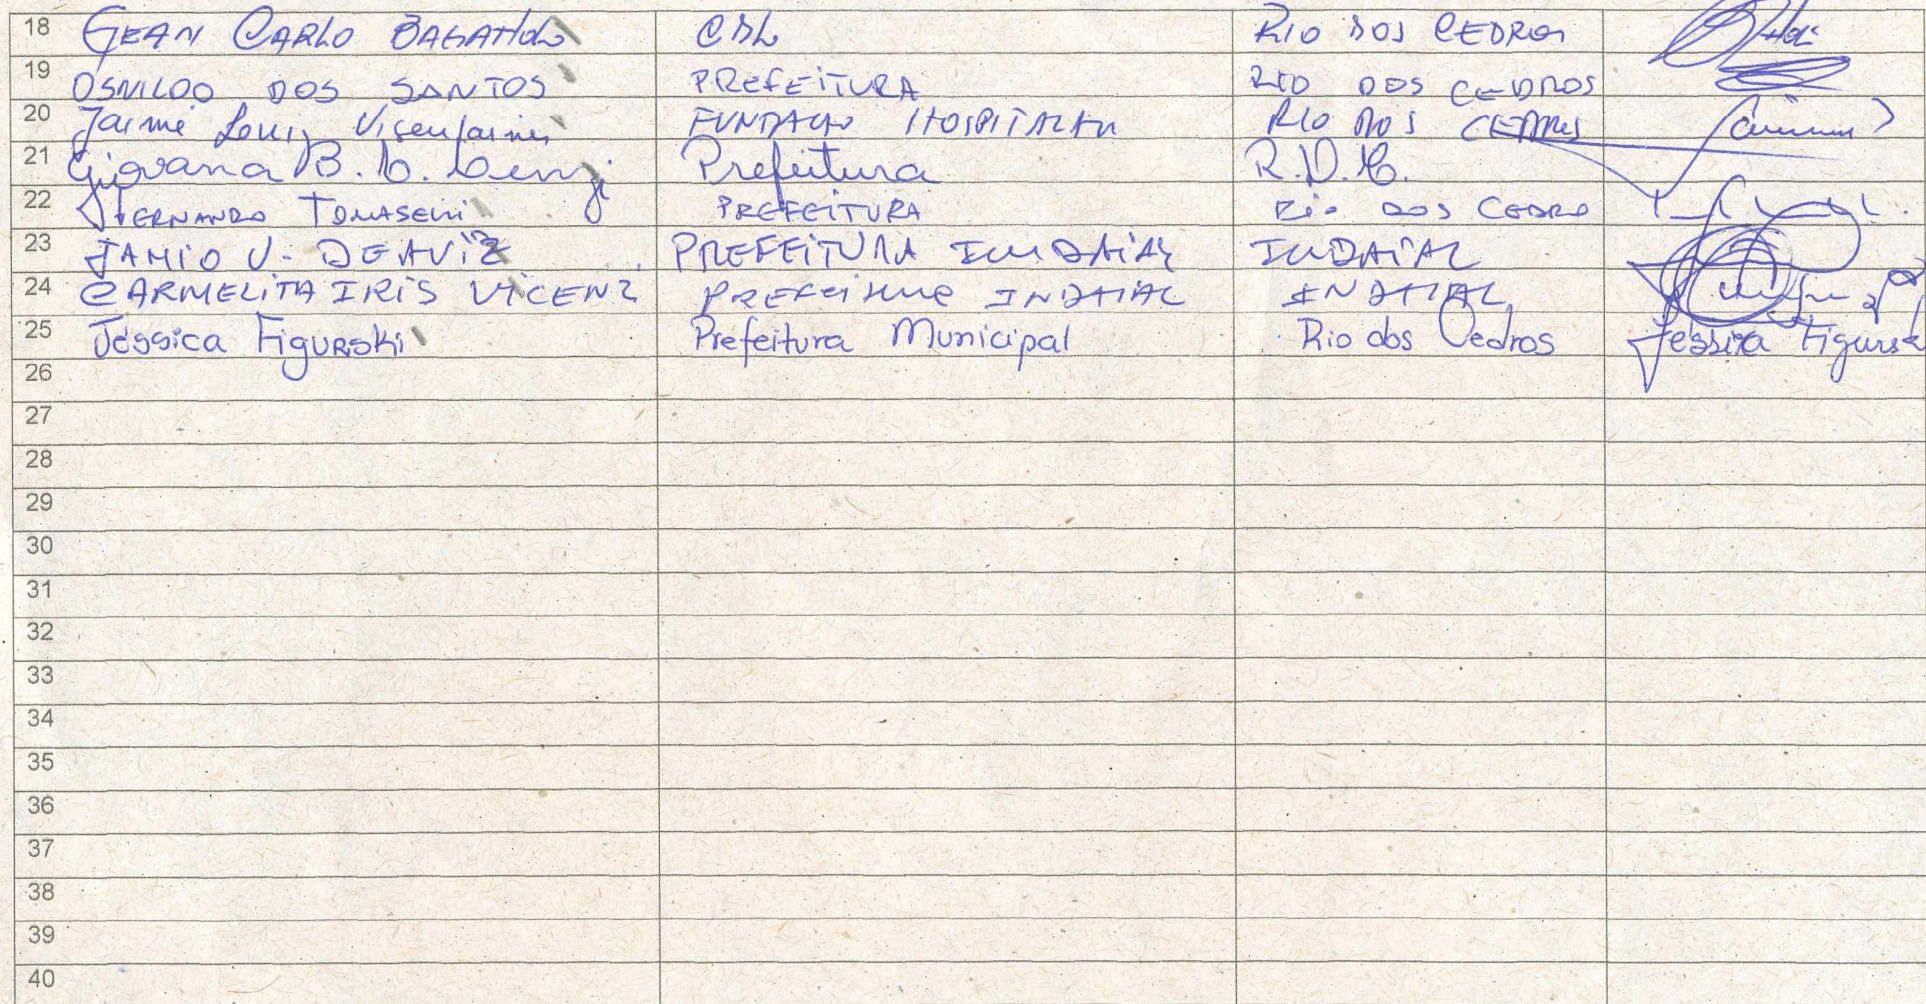 18 GEAN CARLO CDL RIO DOS CEDROS
19 OSNILDO DOS SANTOS PREFEITURA RIO DOS CEDROS
20 Jaime Luiz FUNDAÇÃO HOSPITALAR RIO DOS CEDROS
21 Giovana B. Prefeitura R.D.C.
22 FERNANDO TOMASELLI PREFEITURA RIO DOS CEDRO
23 V. PREFEITURA INDAIAL INDAIAL
24 CARMELITA IRIS VICENZ PREFEITURA INDAIAL INDAIAL
25 Jéssica Figurski Prefeitura Municipal Rio dos Cedros Jéssica Figurski
26
27
28
29
30
31
32
33
34
35
36
37
38
39
40